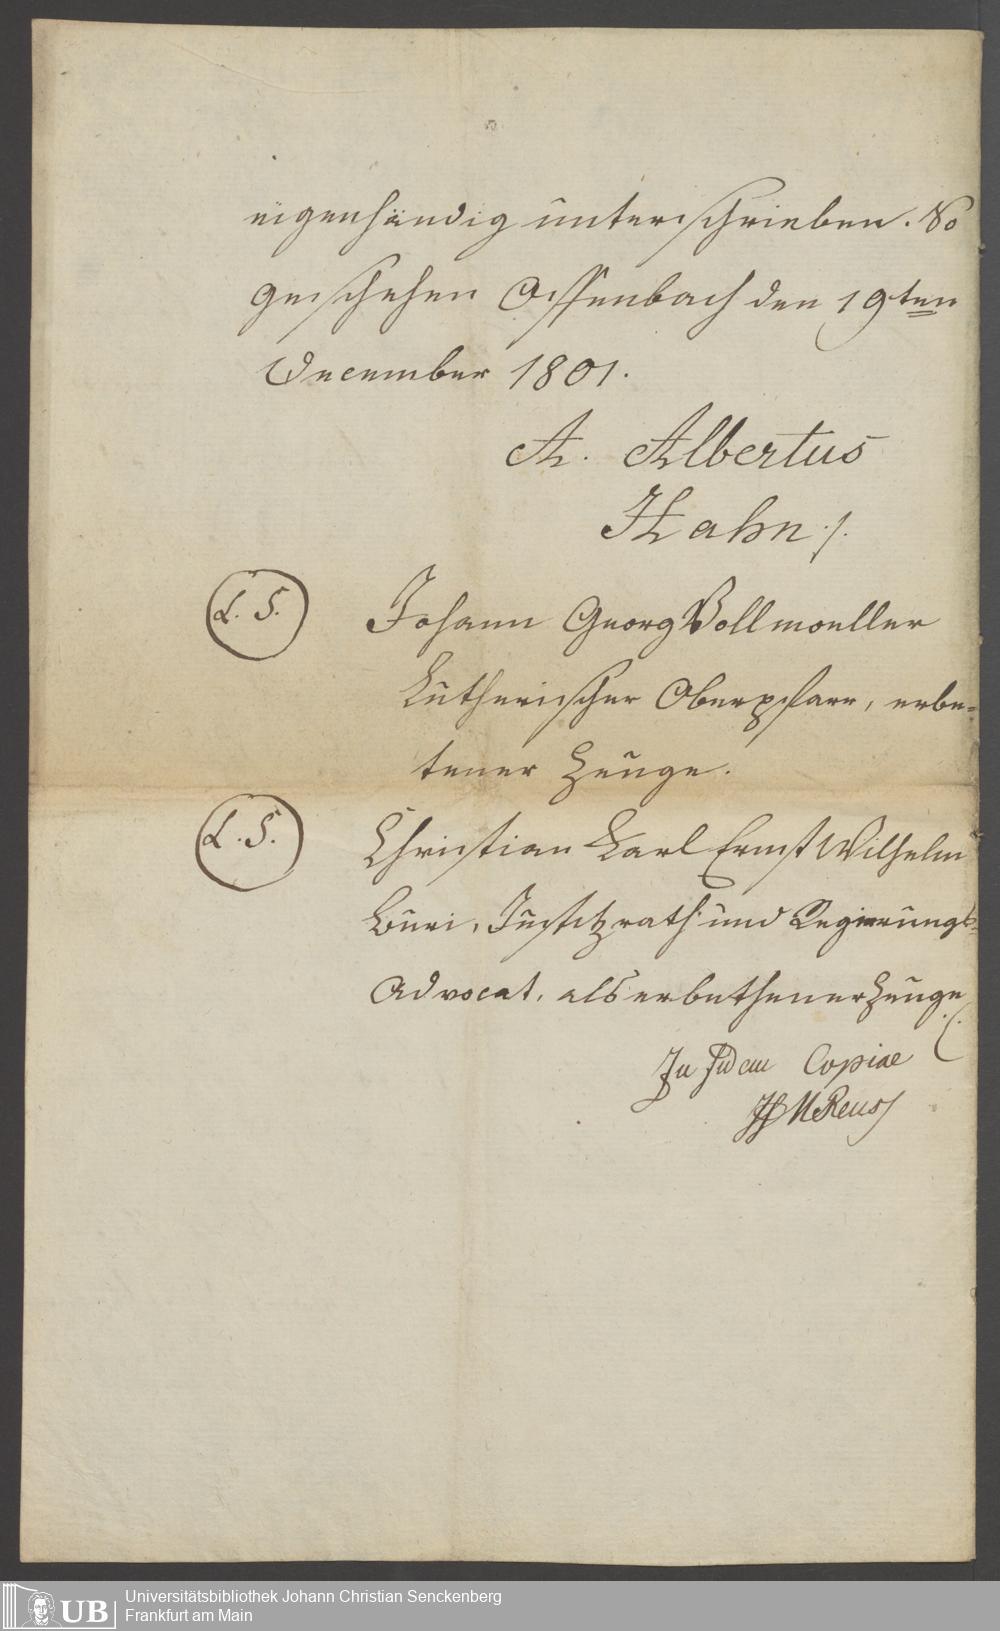 eigenhändig unterschrieben. So
geschehen Offenbach den 19ten
December 1801.
A. Albertus
Hahn ./.
L. S.
Johann Georg Vollmoeller
Lutherischer Oberpfarr, erbe=
tener Zeuge.
L. S.
Christian Karl Ernst Wilhelm
Buri, Justitzrath und Regierungs=
Advocat, als erbethener Zeuge
In fidem Copiae
Reuss
UB
Universitätsbibliothek Johann Christian Senckenberg
Frankfurt am Main